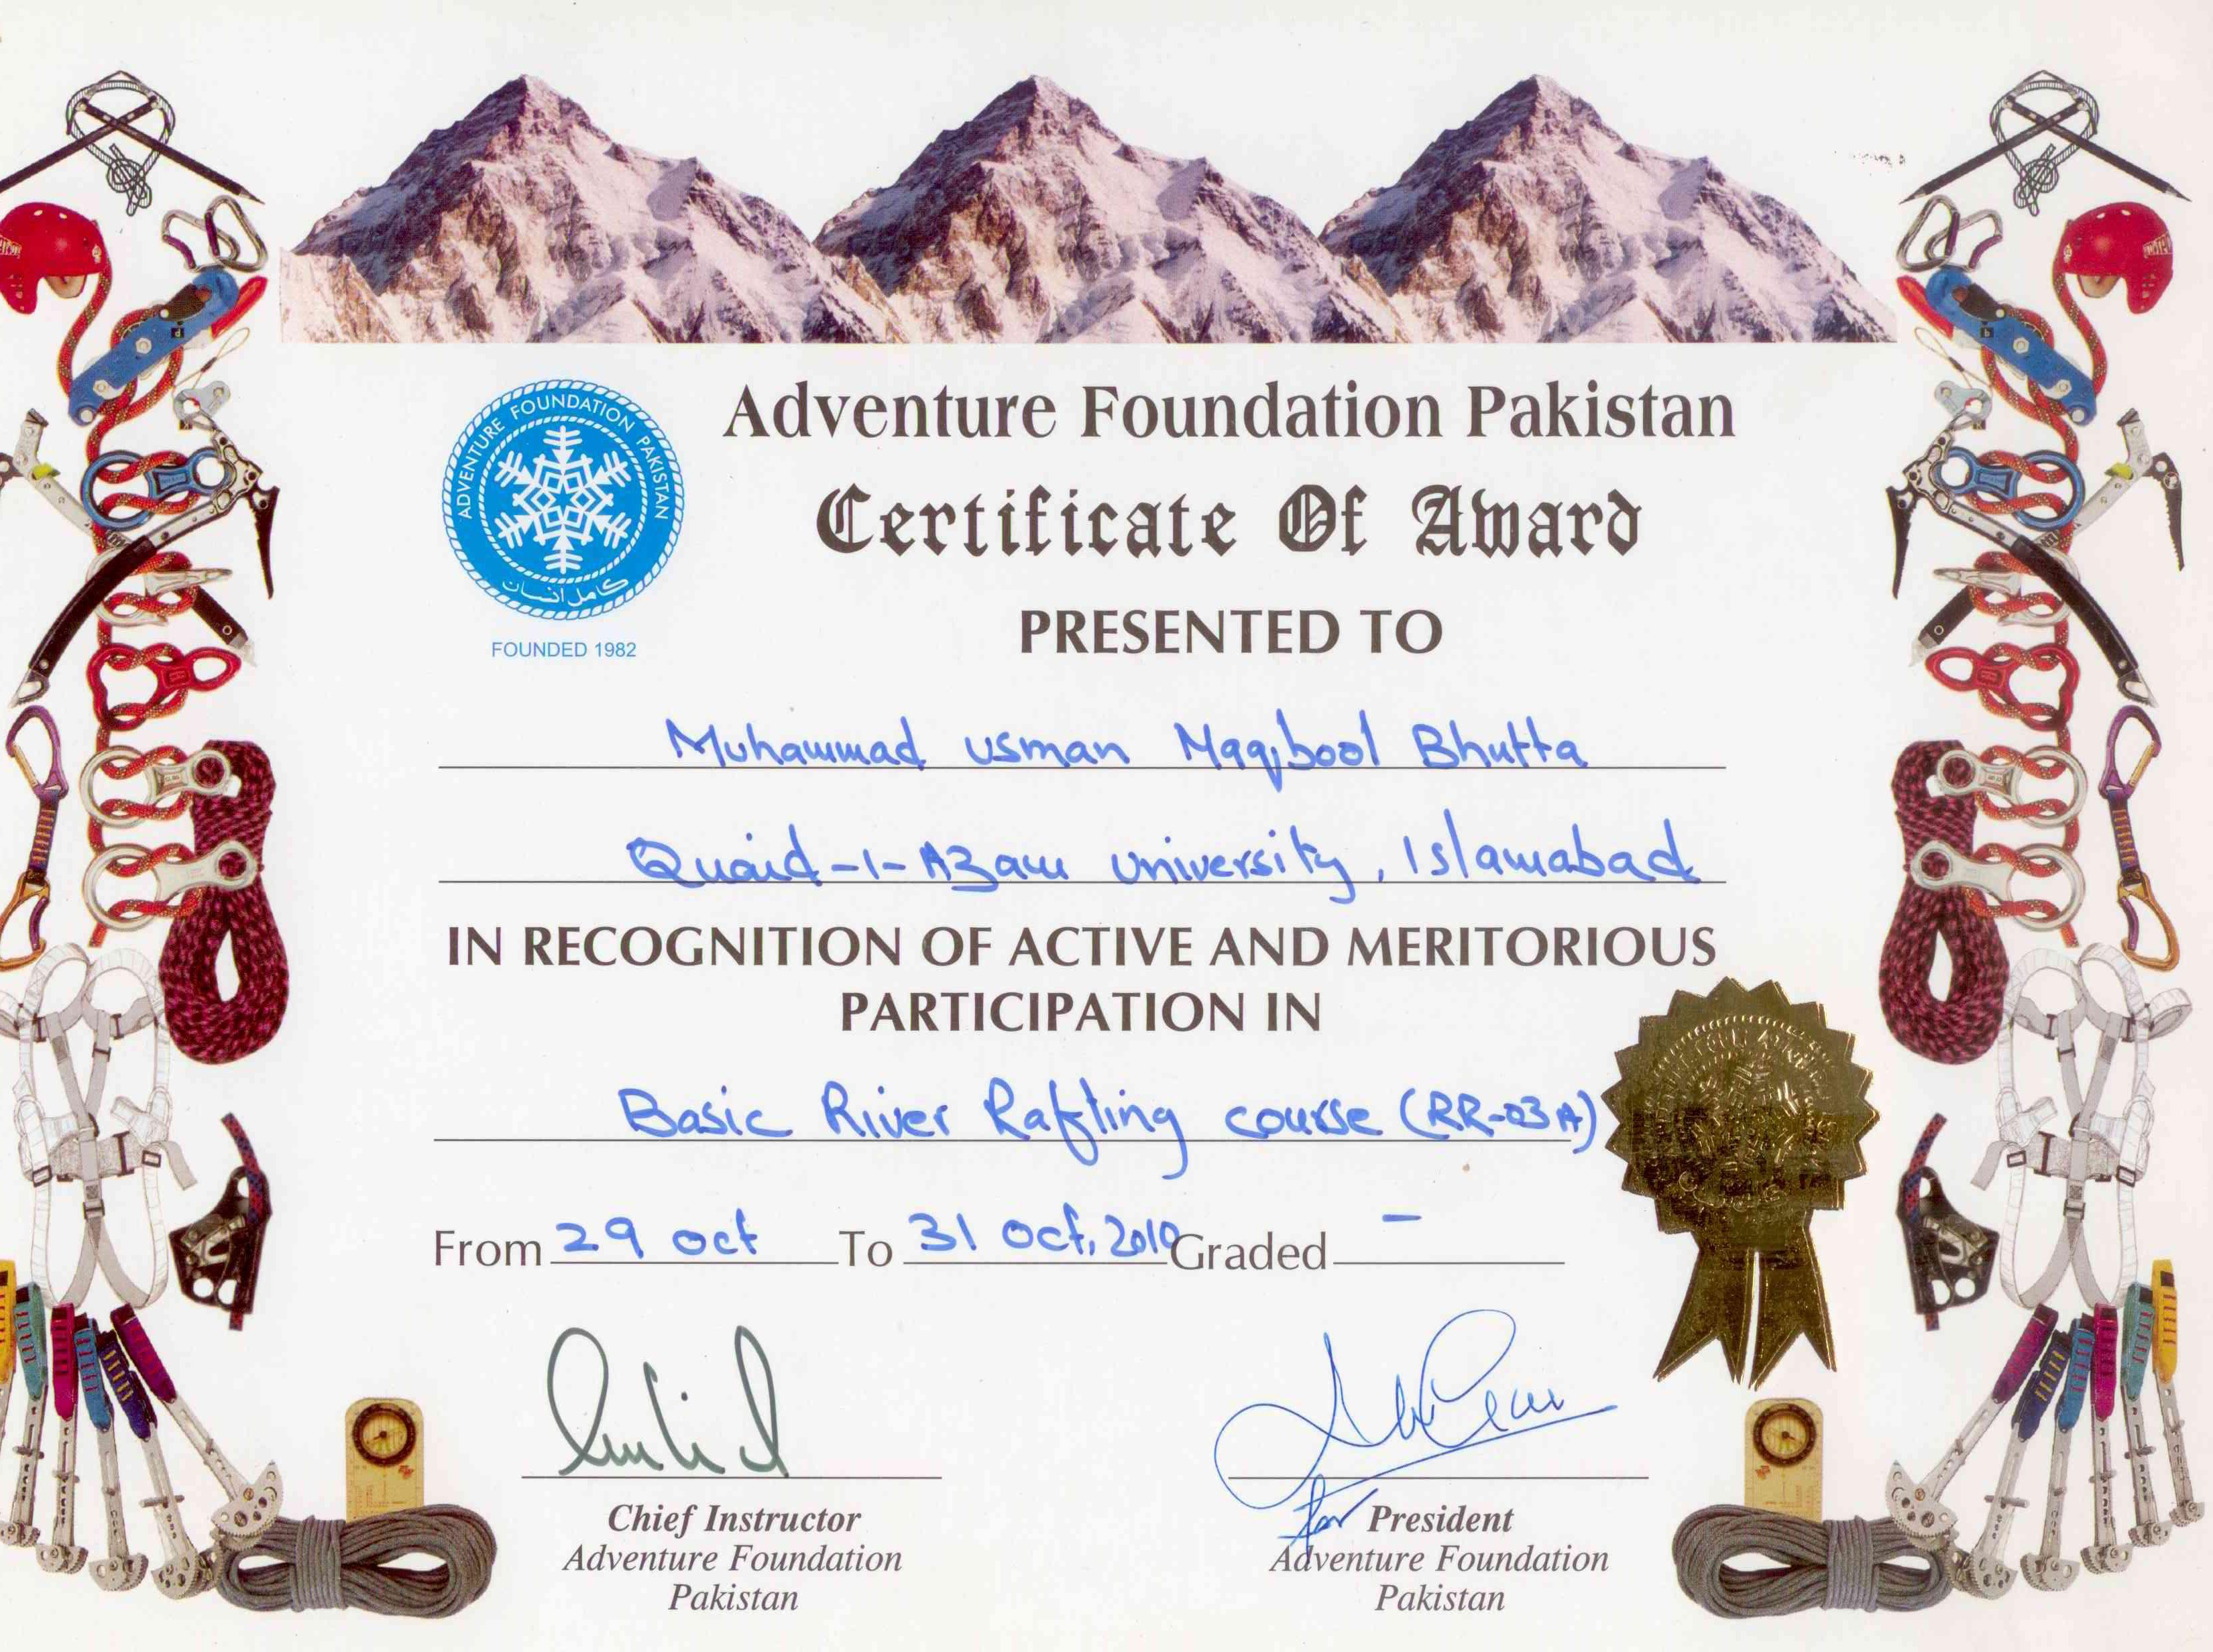 ADVENTURE FOUNDATION PAKISTAN
کامل انسان
FOUNDED 1982
Adventure Foundation Pakistan
Certificate Of Award
PRESENTED TO
Muhammad Usman Maqbool Bhutta
Quaid-i-Azam University, Islamabad
IN RECOGNITION OF ACTIVE AND MERITORIOUS
PARTICIPATION IN
Basic River Rafting course (RR-03A)
From 29 oct To 31 Oct, 2010 Graded –
for
Chief Instructor President
Adventure Foundation Adventure Foundation
Pakistan Pakistan